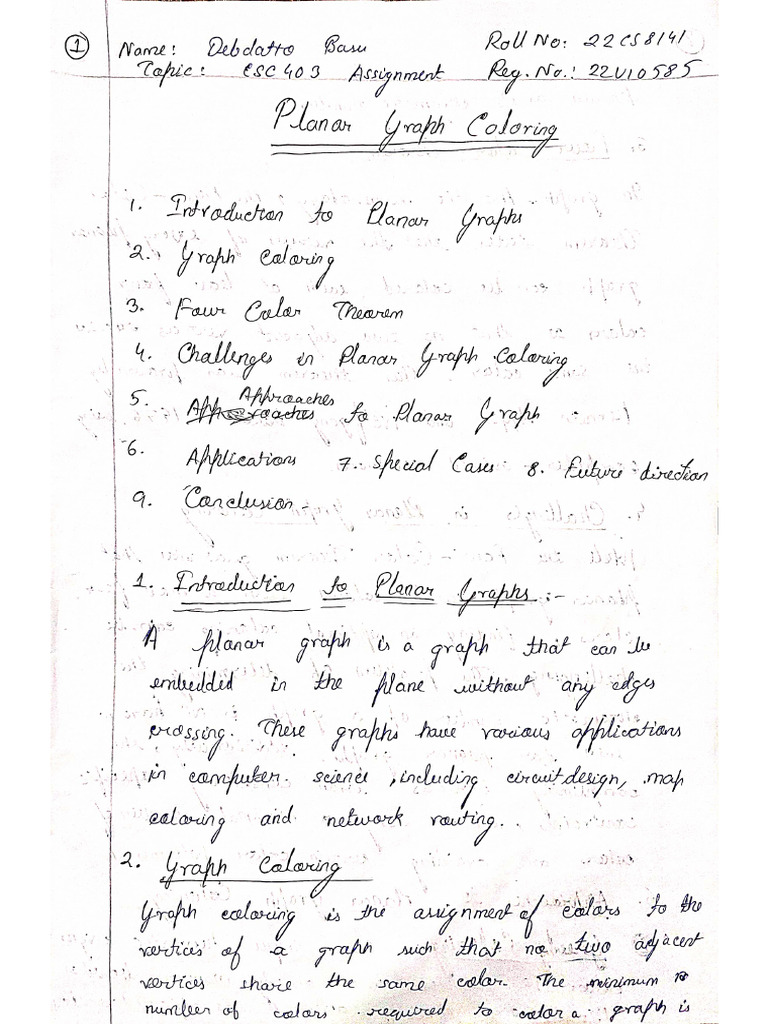 1 Name: Debdatto Basu Roll No: 22CS8141
Topic: ESC403 Assignment Reg. No.: 22U10585
Planar Graph Coloring
1. Introduction to Planar Graphs
2. Graph coloring
3. Four Color Theorem
4. Challenges in Planar Graph Coloring
5. Approaches to Planar Graph
6. Applications 7. Special Cases 8. Future direction
9. Conclusion -
1. Introduction to Planar Graphs :-
A planar graph is a graph that can be
embedded in the plane without any edges
crossing. These graphs have various applications
in computer science, including circuit design, map
coloring and network routing.
2. Graph Coloring
Graph coloring is the assignment of colors to the
vertices of a graph such that no two adjacent
vertices share the same color. The minimum
number of colors required to color a graph is